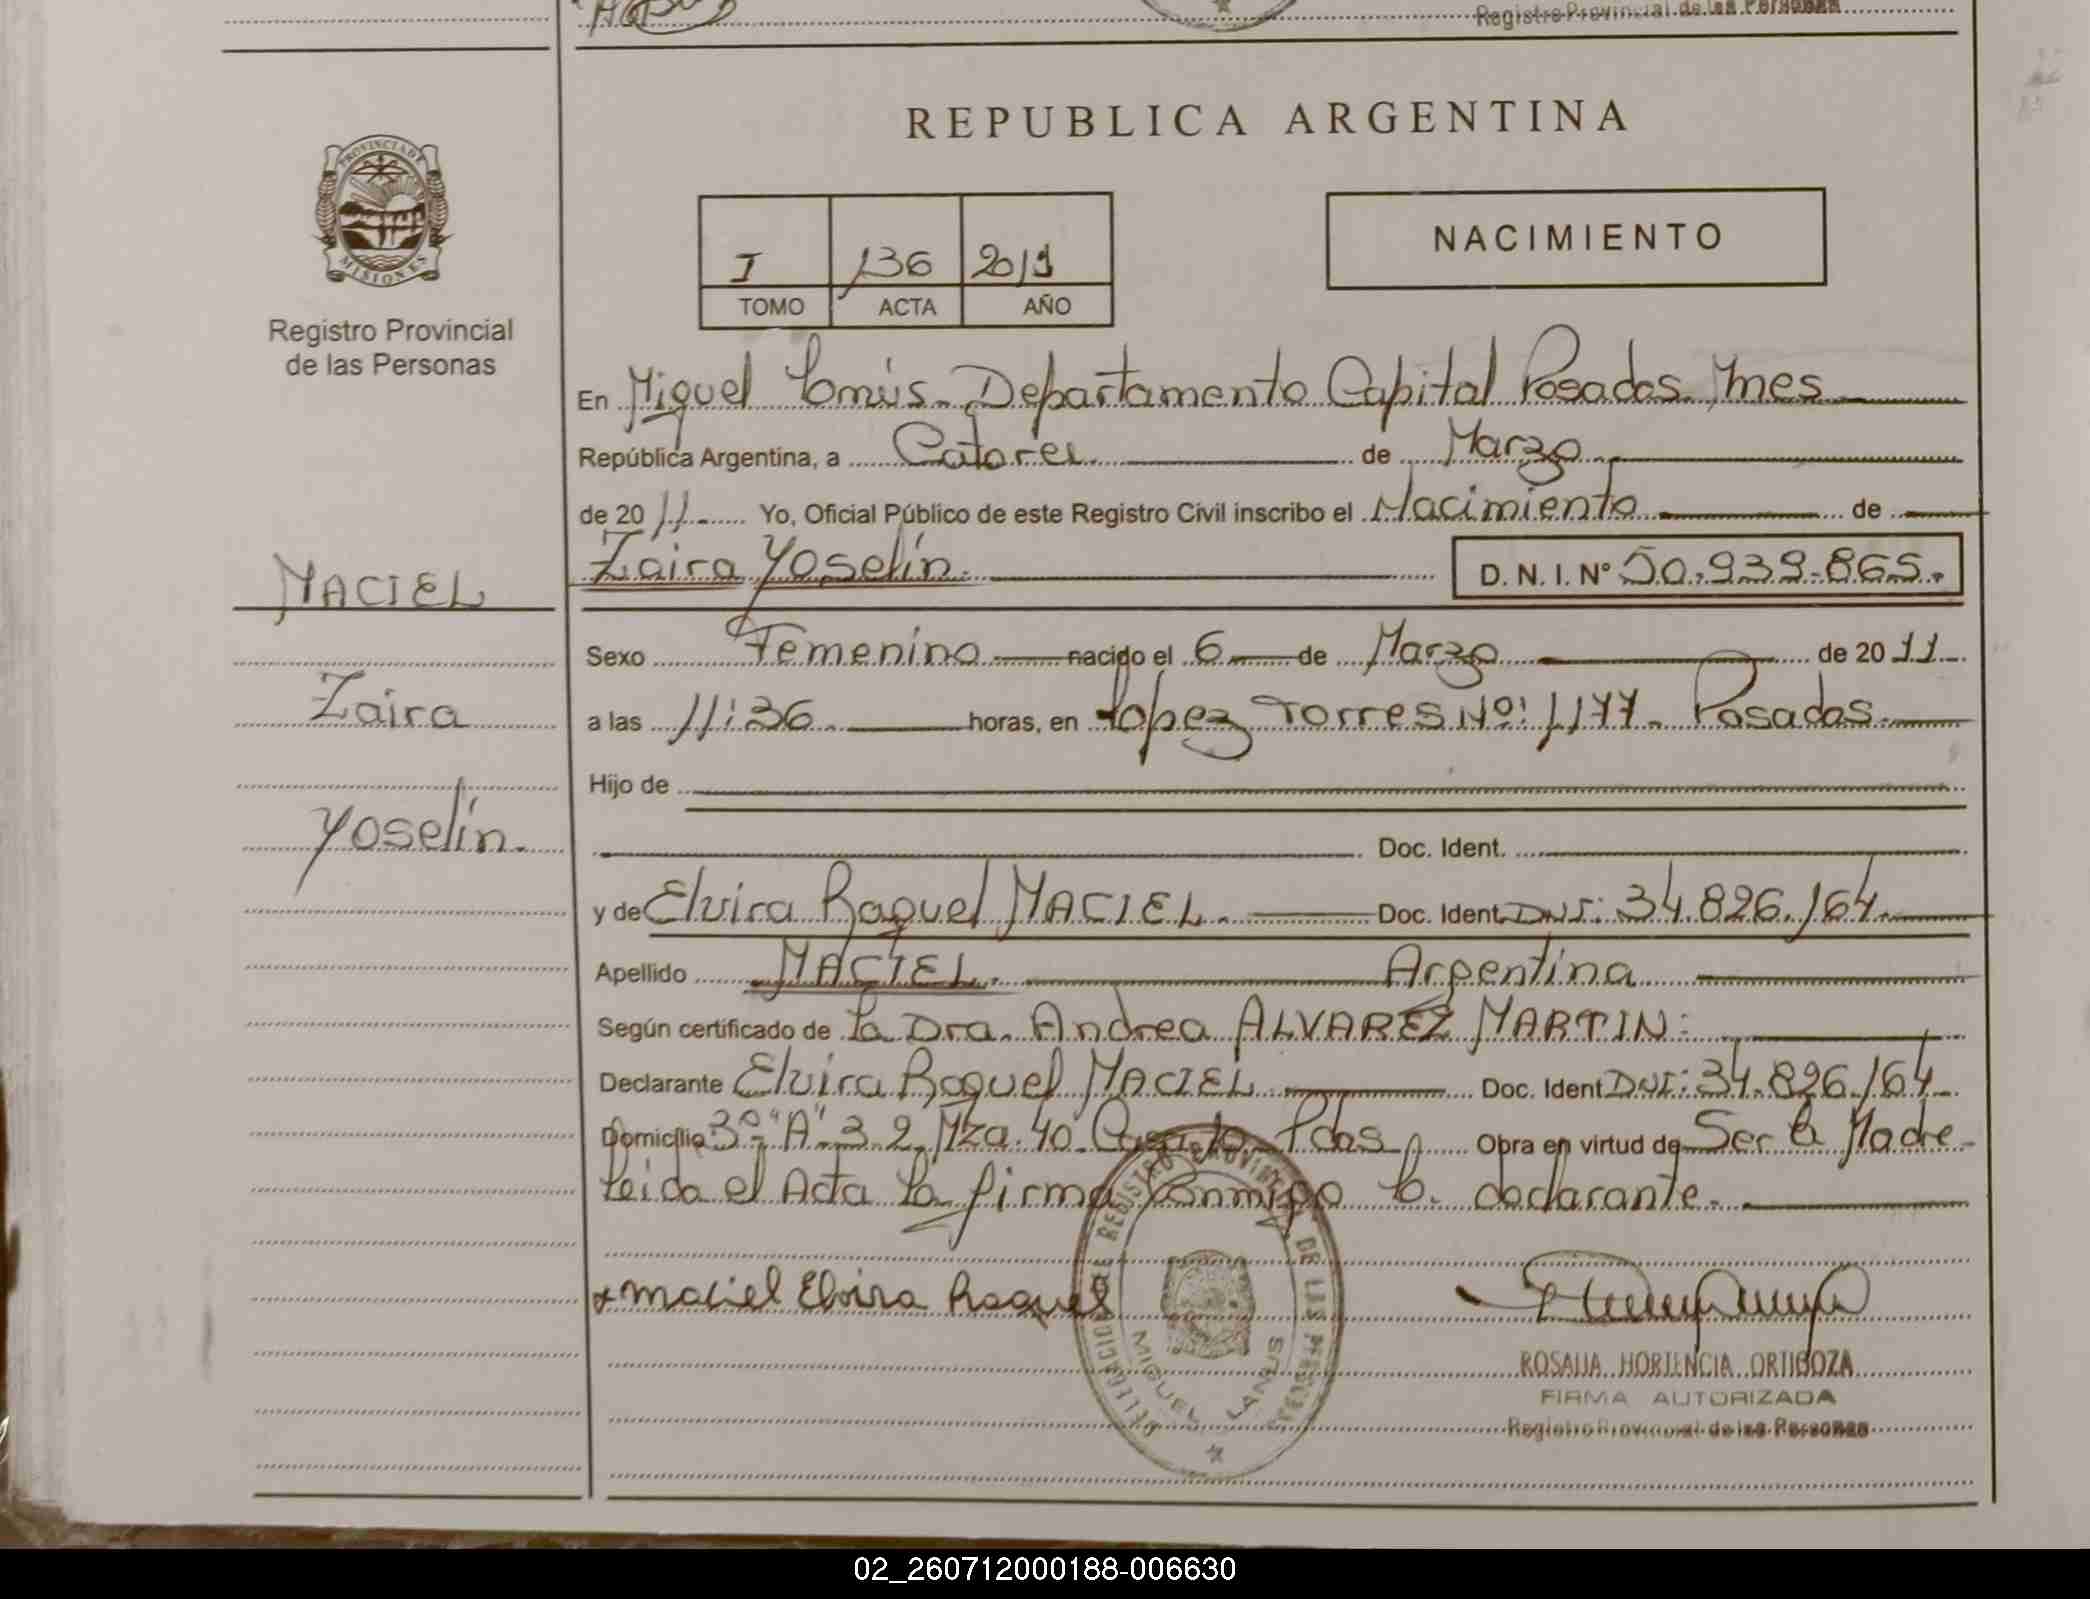 Registro Provincial de las Personas
REPUBLICA ARGENTINA
PROVINCIA DE
MISIONES
Registro Provincial
de las Personas
I 136 2011
TOMO ACTA AÑO
NACIMIENTO
En Miguel Lanús - Departamento Capital Posadas Mnes
República Argentina, a Catorce de Marzo
de 2011 Yo, Oficial Público de este Registro Civil inscribo el Nacimiento de
Zaira Yoselín. D. N. I. N° 50.939.865.
MACIEL
Zaira
Yoselín.
Sexo Femenino nacido el 6 de Marzo de 2011
a las 11:36 horas, en López Torres Nº: 1177 - Posadas
Hijo de
Doc. Ident.
y de Elvira Raquel MACIEL. Doc. Ident DNI: 34.826.164
Apellido MACIEL. Argentina
Según certificado de La Dra. Andrea ALVAREZ MARTIN:
Declarante Elvira Raquel MACIEL Doc. Ident DNI: 34.826.164
Domicilio 3º "A" 3.2. Mza. 40 Pdas Obra en virtud de Ser la Madre
Leida el Acta la firma Conmigo la declarante.
x Maciel Elvira Raquel
DELEGACION DE REGISTRO PROVINCIAL DE LAS PERSONAS
MIGUEL LANUS
ROSALIA HORTENCIA ORTIGOZA
FIRMA AUTORIZADA
Registro Provincial de las Personas
02_260712000188-006630